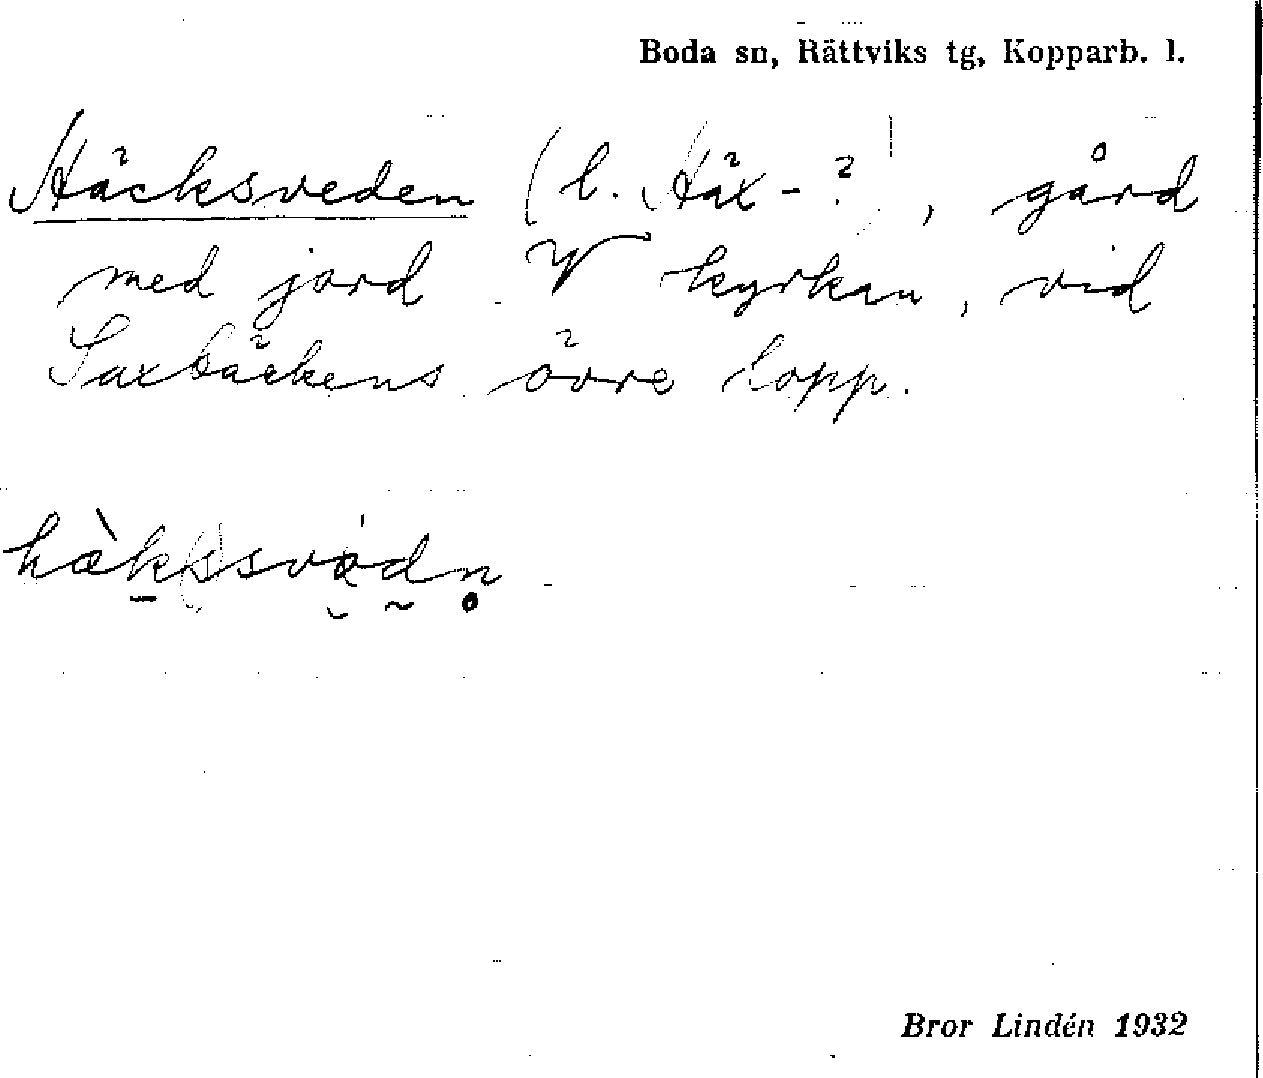 Boda sn, Rättviks tg, Kopparb. l.
Häcksveden (l. Häx-?), gård
med jord V kyrkan, vid
Saxbäckens övre lopp.
Bror Lindén 1932